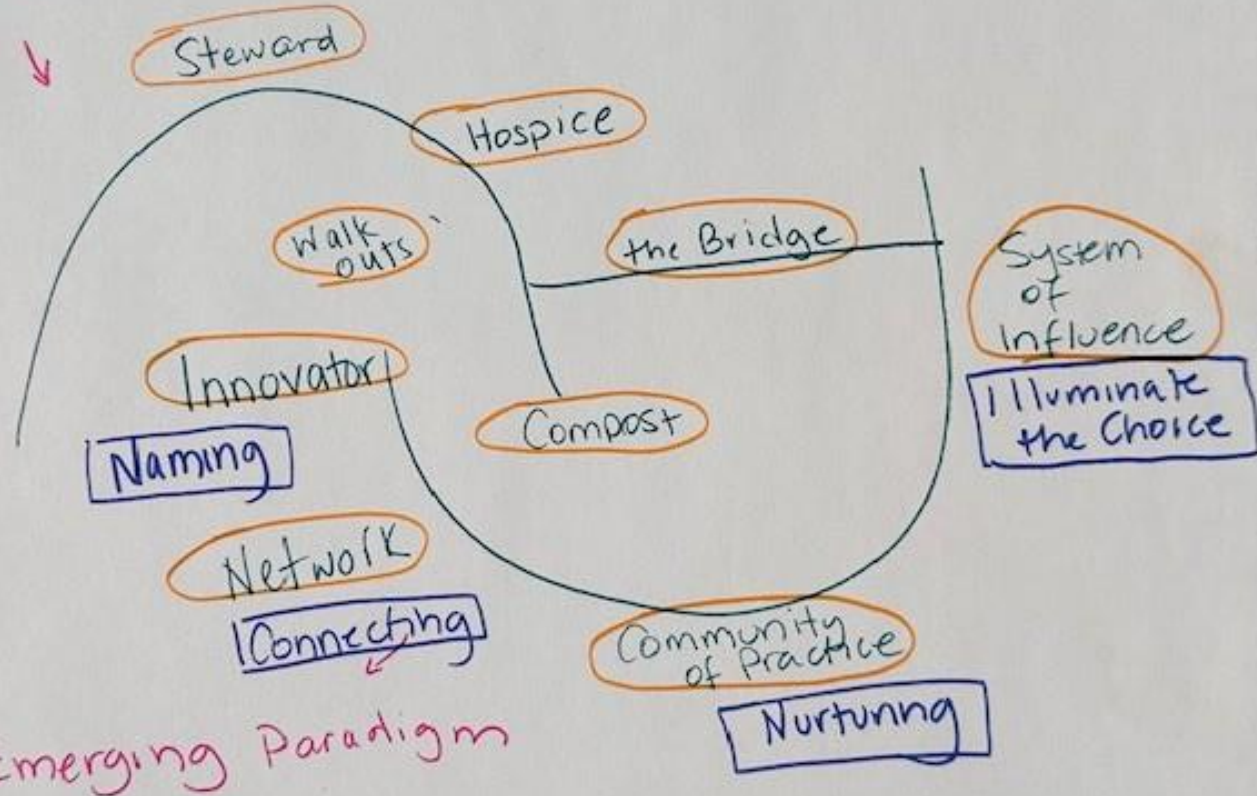 Steward
Hospice
Walk
outs
the Bridge
System
of
Influence
Innovator
Illuminate
the Choice
Compost
Naming
Network
Connecting
Community
of Practice
Nurturing
Emerging Paradigm